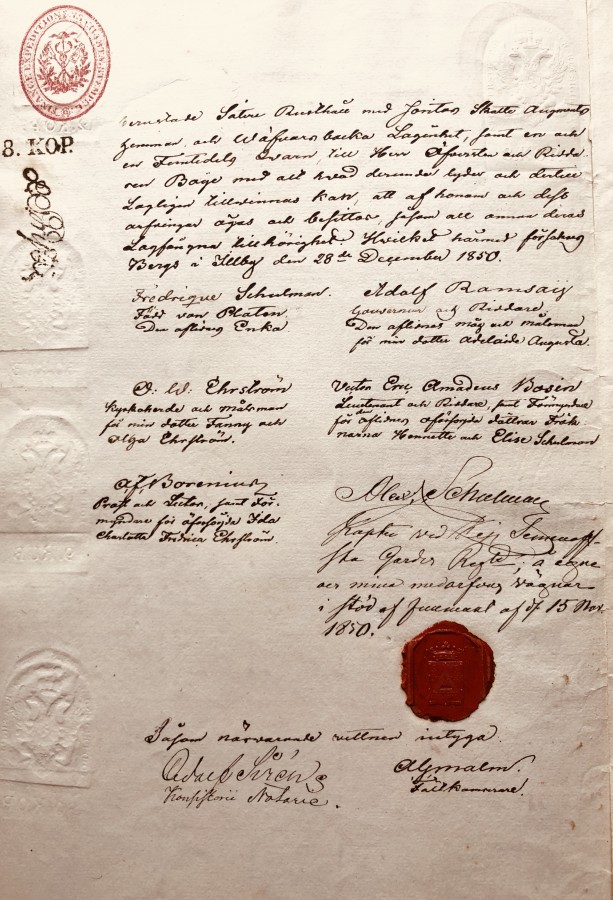 8. KOP.
Säteri Rusthåll med Jontas Skatte Augments
hemman, och Wåfvarsbacka Lägenhet, samt en och
en Femtedels qvarn till Herr Öfversten och Ridda-
ren Båge med allt hvad derunder lyder och dertill
Lagligen tillvinnas kan, att af honom och dess
arfvingar ägas och besittas, såsom all annan deras
Lagfångna tillhörighet. Hvilket härmed försäkras
Bergs i Illby den 28de December 1850.
Fredrique Schulman.
Född von Platen
Den aflidnes Enka
Adolf Ramsay
Gouverneur och Riddare,
Den aflidnes måg och målsman
för min dotter Adelaide Augusta.
O: W: Ehrström
Kyrkoherde och målsman
för min dotter Fanny och
Olga Ehrström.
Victor Eric Amadeus Bosin
Lieutenant och Riddare, samt Förmyndare
för den aflidnes oförsörjda döttrar Frök-
narna Hennette och Elise Schulman
Af. Borenius
Prost och Lector, samt För-
myndare för oförsörjda Ida
Charlotte Fredrica Ehrström.
Alex. Schulman
Kapten ved
ska Gardes Regtet, å egne
och mina medarfvingars vägnar
i stöd af fullmakt af d 15 Nov
1850.
Såsom närvarande vittnen intyga.
Adolf Sirén
Konsistorii Notarie.
Almalm.
Fältkamrerare.